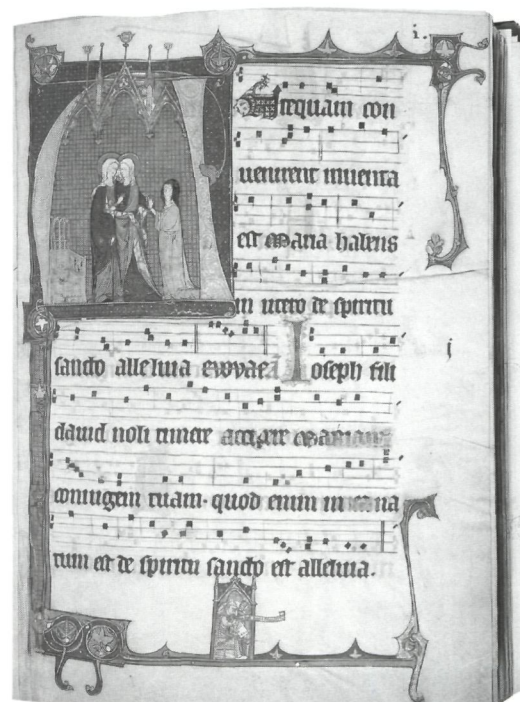 i.
Antequam con
uenirent inuenta
est Maria habens
in utero de spiritu
sancto alleluia euovae Ioseph fili
dauid noli timere accipere Mariam
coniugem tuam· quod enim in ea na
tum est de spiritu sancto est alleluia.
j